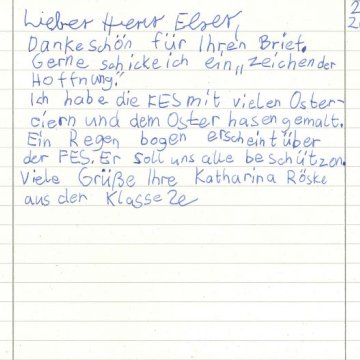 Lieber Herr Elser,
Dankeschön für Ihren Brief.
Gerne schicke ich ein „zeichen der
Hoffnung."
Ich habe die FES mit vielen Oster-
eiern und dem Oster hasen gemalt.
Ein Regen bogen erscheint über
der FES. Er soll uns alle beschützen.
Viele Grüße Ihre Katharina Röske
aus der Klasse 2e